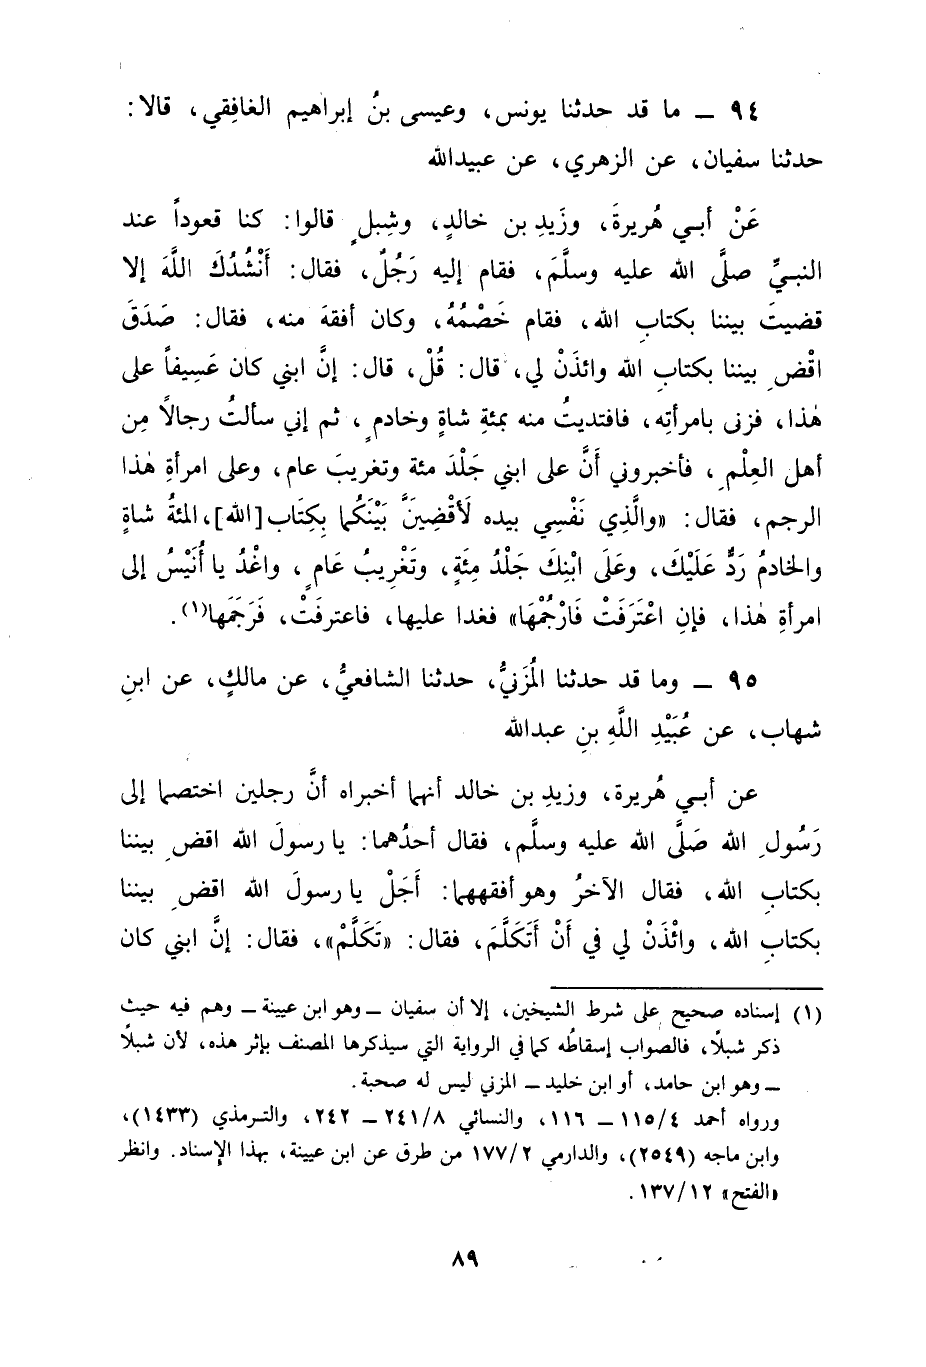 ٩٤ ــ ما قد حدثنا يونس، وعيسى بنُ إبراهيم الغافِقي، قالا:
حدثنا سفيان، عن الزهري، عن عبيدالله
عَنْ أبـي هُريرةَ، وزَيدِ بن خالدٍ، وشِبلٍ قالوا: كنا قعوداً عند
النبـيِّ صلَّى الله عليه وسلَّمَ، فقام إليه رَجُلٌ، فقال: أَنْشُدُكَ اللَّهَ إلا
قضيتَ بيننا بكتابِ الله، فقام خَصْمُهُ، وكان أفقهَ منه، فقال: صَدَقَ
اقْضِ بيننا بكتابِ الله وائذَنْ لي، قال: قُلْ، قال: إنَّ ابني كان عَسِيفاً على
هٰذا، فزنى بامرأتِه، فافتديتُ منه بمئةِ شاةٍ وخادمٍ، ثم إني سألتُ رجالاً مِن
أهل العِلْمِ، فأخبروني أَنَّ على ابني جَلْدَ مئة وتغريبَ عام، وعلى امرأةِ هٰذا
الرجم، فقال: «والَّذِي نَفْسِي بيده لَأقْضِيَنَّ بَيْنَكُما بِكِتَاب[الله]، المئةُ شاةٍ
والخادمُ رَدٌّ عَلَيْكَ، وعَلَى ابْنِكَ جَلْدُ مِئَةٍ، وتَغْرِيبُ عَامٍ، واغْدُ يا أُنَيْسُ إلى
امرأةِ هٰذا، فإنِ اعْتَرَفَتْ فَارْجُمْهَا» فغدا عليها، فاعترفَتْ، فَرَجَمَها(١).
٩٥ ــ وما قد حدثنا المُزَنيُّ، حدثنا الشافعيُّ، عن مالكٍ، عن ابنِ
شهاب، عن عُبَيْدِ اللَّهِ بنِ عبدالله
عن أبـي هُريرة، وزيدِ بن خالد أنهما أخبراه أنَّ رجلين اختصما إلى
رَسُولِ الله صَلَّى الله عليه وسلَّم، فقال أحدُهما: يا رسولَ الله اقضِ بيننا
بكتابِ الله، فقال الآخرُ وهو أفقههما: أَجَلْ يا رسولَ الله اقضِ بيننا
بكتابِ الله، وائْذَنْ لي في أَنْ أَتَكَلَّمَ، فقال: «تَكَلَّمْ»، فقال: إنَّ ابني كان
(١) إسناده صحيح على شرط الشيخين، إلا أن سفيان ــ وهو ابن عيينة ــ وهم فيه حيث
ذكر شبلًا، فالصواب إسقاطُه كما في الرواية التي سيذكرها المصنف بإثر هذه، لأن شبلًا
ــ وهو ابن حامد، أو ابن خليد ــ المزني ليس له صحبة.
ورواه أحمد ١١٥/٤ ــ ١١٦، والنسائي ٢٤١/٨ ــ ٢٤٢، والتـرمذي (١٤٣٣)،
وابن ماجه (٢٥٤٩)، والدارمي ١٧٧/٢ من طرق عن ابن عيينة، بهذا الإسناد. وانظر
«الفتح» ١٣٧/١٢.
٨٩